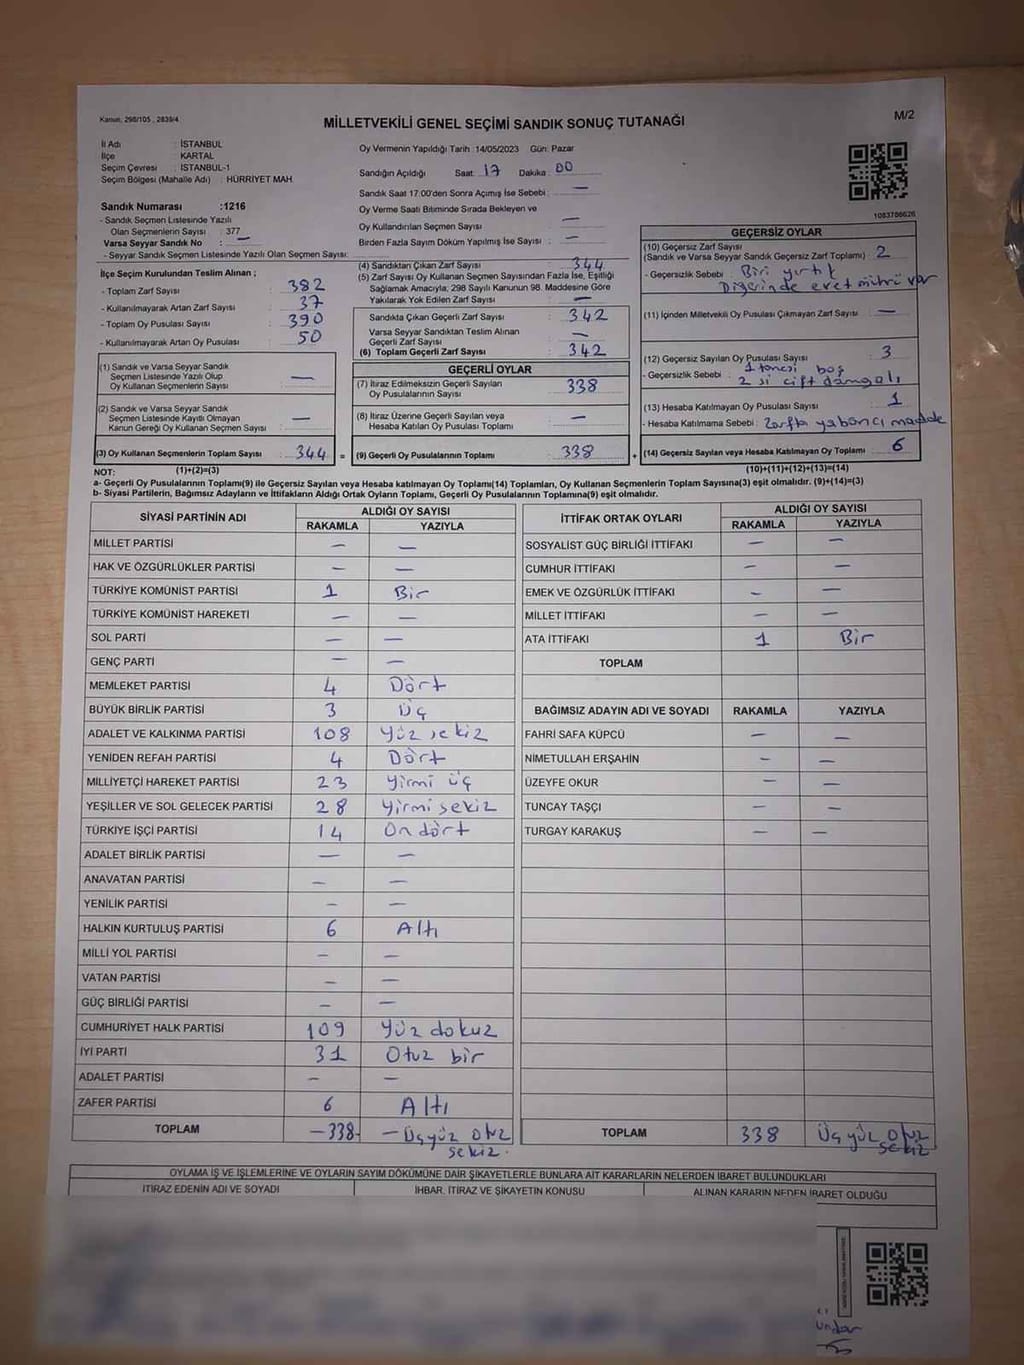 Kanun, 298/105 , 2839/4
MİLLETVEKİLİ GENEL SEÇİMİ SANDIK SONUÇ TUTANAĞI
M/2
İl Adı : İSTANBUL
İlçe : KARTAL
Seçim Çevresi : İSTANBUL-1
Seçim Bölgesi (Mahalle Adı) : HÜRRİYET MAH
Sandık Numarası :1216
- Sandık Seçmen Listesinde Yazılı
Olan Seçmenlerin Sayısı : 377
Varsa Seyyar Sandık No : —
- Seyyar Sandık Seçmen Listesinde Yazılı Olan Seçmen Sayısı:
Oy Vermenin Yapıldığı Tarih :14/05/2023 Gün: Pazar
Sandığın Açıldığı Saat: 17 Dakika: 00
Sandık Saat 17:00'den Sonra Açılmış İse Sebebi : —
Oy Verme Saati Bitiminde Sırada Bekleyen ve
Oy Kullandırılan Seçmen Sayısı : —
Birden Fazla Sayım Döküm Yapılmış İse Sayısı : —
1083786626
İlçe Seçim Kurulundan Teslim Alınan ;
- Toplam Zarf Sayısı : 382
- Kullanılmayarak Artan Zarf Sayısı : 37
- Toplam Oy Pusulası Sayısı : 390
- Kullanılmayarak Artan Oy Pusulası : 50
(1) Sandık ve Varsa Seyyar Sandık
Seçmen Listesinde Yazılı Olup
Oy Kullanan Seçmenlerin Sayısı : —
(2) Sandık ve Varsa Seyyar Sandık
Seçmen Listesinde Kayıtlı Olmayan
Kanun Gereği Oy Kullanan Seçmen Sayısı : —
(3) Oy Kullanan Seçmenlerin Toplam Sayısı : 344 =
(4) Sandıktan Çıkan Zarf Sayısı : 344
(5) Zarf Sayısı Oy Kullanan Seçmen Sayısından Fazla İse, Eşitliği
Sağlamak Amacıyla; 298 Sayılı Kanunun 98. Maddesine Göre
Yakılarak Yok Edilen Zarf Sayısı : —
Sandıkta Çıkan Geçerli Zarf Sayısı : 342
Varsa Seyyar Sandıktan Teslim Alınan
Geçerli Zarf Sayısı : —
(6) Toplam Geçerli Zarf Sayısı : 342
GEÇERLİ OYLAR
(7) İtiraz Edilmeksizin Geçerli Sayılan
Oy Pusulalarının Sayısı : 338
(8) İtiraz Üzerine Geçerli Sayılan veya
Hesaba Katılan Oy Pusulası Toplamı : —
(9) Geçerli Oy Pusulalarının Toplamı : 338 +
GEÇERSİZ OYLAR
(10) Geçersiz Zarf Sayısı
(Sandık ve Varsa Seyyar Sandık Geçersiz Zarf Toplamı) : 2
- Geçersizlik Sebebi : Biri yırtık
Diğerinde evet mührü var
(11) İçinden Milletvekili Oy Pusulası Çıkmayan Zarf Sayısı : —
(12) Geçersiz Sayılan Oy Pusulası Sayısı : 3
- Geçersizlik Sebebi : 1 tanesi boş
2 si çift damgalı
(13) Hesaba Katılmayan Oy Pusulası Sayısı : 1
- Hesaba Katılmama Sebebi : Zarfta yabancı madde
(14) Geçersiz Sayılan veya Hesaba Katılmayan Oy Toplamı : 6
NOT: (1)+(2)=(3) (10)+(11)+(12)+(13)=(14)
a- Geçerli Oy Pusulalarının Toplamı(9) ile Geçersiz Sayılan veya Hesaba katılmayan Oy Toplamı(14) Toplamları, Oy Kullanan Seçmenlerin Toplam Sayısına(3) eşit olmalıdır. (9)+(14)=(3)
b- Siyasi Partilerin, Bağımsız Adayların ve İttifakların Aldığı Ortak Oyların Toplamı, Geçerli Oy Pusulalarının Toplamına(9) eşit olmalıdır.
SİYASİ PARTİNİN ADI ALDIĞI OY SAYISI
RAKAMLA YAZIYLA
MİLLET PARTİSİ — —
HAK VE ÖZGÜRLÜKLER PARTİSİ — —
TÜRKİYE KOMÜNİST PARTİSİ 1 Bir
TÜRKİYE KOMÜNİST HAREKETİ — —
SOL PARTİ — —
GENÇ PARTİ — —
MEMLEKET PARTİSİ 4 Dört
BÜYÜK BİRLİK PARTİSİ 3 Üç
ADALET VE KALKINMA PARTİSİ 108 Yüz sekiz
YENİDEN REFAH PARTİSİ 4 Dört
MİLLİYETÇİ HAREKET PARTİSİ 23 Yirmi üç
YEŞİLLER VE SOL GELECEK PARTİSİ 28 Yirmi sekiz
TÜRKİYE İŞÇİ PARTİSİ 14 On dört
ADALET BİRLİK PARTİSİ — —
ANAVATAN PARTİSİ — —
YENİLİK PARTİSİ — —
HALKIN KURTULUŞ PARTİSİ 6 Altı
MİLLİ YOL PARTİSİ — —
VATAN PARTİSİ — —
GÜÇ BİRLİĞİ PARTİSİ — —
CUMHURİYET HALK PARTİSİ 109 Yüz dokuz
İYİ PARTİ 31 Otuz bir
ADALET PARTİSİ — —
ZAFER PARTİSİ 6 Altı
TOPLAM —338- —Üçyüz Otuz
sekiz.
İTTİFAK ORTAK OYLARI ALDIĞI OY SAYISI
RAKAMLA YAZIYLA
SOSYALİST GÜÇ BİRLİĞİ İTTİFAKI — —
CUMHUR İTTİFAKI — —
EMEK VE ÖZGÜRLÜK İTTİFAKI — —
MİLLET İTTİFAKI — —
ATA İTTİFAKI 1 Bir
TOPLAM
BAĞIMSIZ ADAYIN ADI VE SOYADI RAKAMLA YAZIYLA
FAHRİ SAFA KÜPCÜ — —
NİMETULLAH ERŞAHİN — —
ÜZEYFE OKUR — —
TUNCAY TAŞÇI — —
TURGAY KARAKUŞ — —
TOPLAM 338 Üç yüz Otuz
sekiz
OYLAMA İŞ VE İŞLEMLERİNE VE OYLARIN SAYIM DÖKÜMÜNE DAİR ŞİKAYETLERLE BUNLARA AİT KARARLARIN NELERDEN İBARET BULUNDUKLARI
İTİRAZ EDENİN ADI VE SOYADI İHBAR, İTİRAZ VE ŞİKAYETİN KONUSU ALINAN KARARIN NEDEN İBARET OLDUĞU